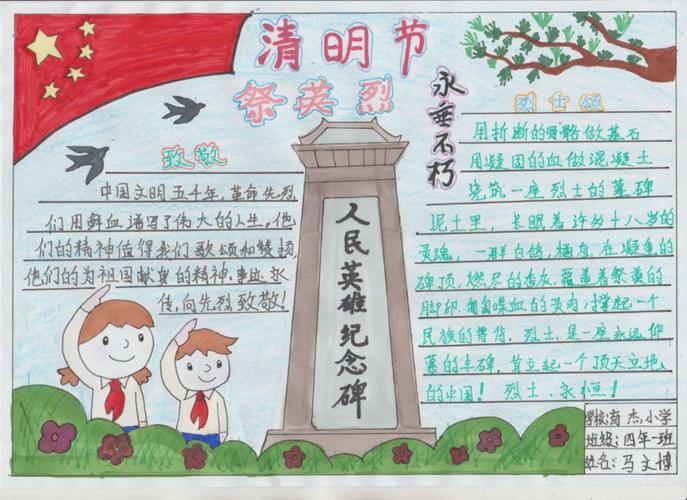 清明节
祭英烈
永垂不朽
致敬
中国文明五千年,革命先烈
们用鲜血谱写了伟大的人生,他
们的精神值得我们歌颂和赞扬
他们的为祖国献身的精神、事迹永
传,向先烈致敬!
人民英雄纪念碑
烈士颂
用折断的骨骼做基石
用凝固的血做混凝土
浇筑一座烈士的墓碑
泥土里,长眠着许多十八岁的
灵魂,一群白鸽,栖息在凝重的
碑顶,燃尽的香灰,覆盖着祭奠的
脚印,匍匐喋血的灵肉,撑起一个
民族的脊背,烈士,是一座永远仰
慕的丰碑,耸立起一个顶天立地
的中国!烈士,永恒!
学校:杰小学
班级:四年一班
姓名:马文博